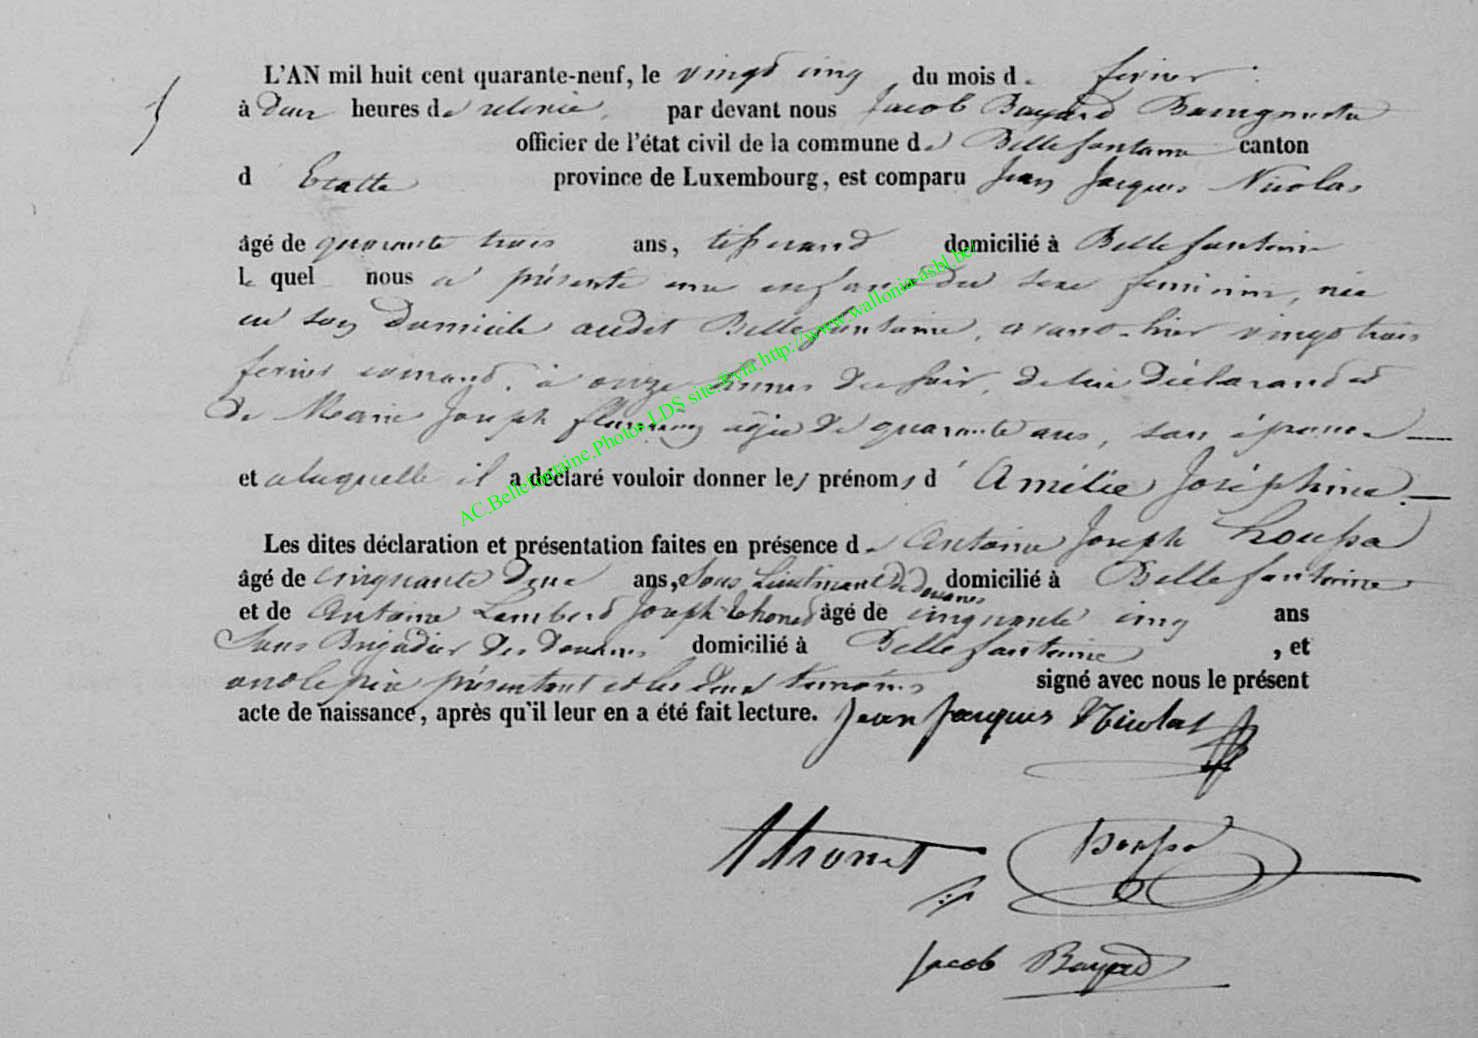 L'AN mil huit cent quarante-neuf, le vingt cinq du mois de fevrier
à deux heures de relevée, par devant nous Jacob Bayard Bourgmestre
officier de l'état civil de la commune de Bellefontaine canton
d' Etalle province de Luxembourg, est comparu Jean Jacques Nicolas
âgé de quarante trois ans, tisserand domicilié à Bellefontaine
le quel nous a présenté une enfant du sexe feminin, née
en son domicile audit Bellefontaine, avant-hier vingt trois
fevrier courant, à onze heures du soir, de lui déclarant et
de Marie Joseph âgée de quarante ans, son épouse
et a laquelle il a déclaré vouloir donner les prénoms d' Amélie Joséphine
Les dites déclaration et présentation faites en présence de Antoine Joseph
âgé de cinquante deux ans, Sous Lieutenant de douanes domicilié à Bellefontaine
et de Antoine Lambert Joseph âgé de cinquante cinq ans
Sous Brigadier des douanes domicilié à Bellefontaine, et
ont le père présentant et les deux temoins signé avec nous le présent
acte de naissance, après qu'il leur en a été fait lecture. Jean Jacques Nicolas
Jacob Bayard
AC.Bellefontaine.Photos.LDS site.@via.http://www.wallonia-asbl.be/